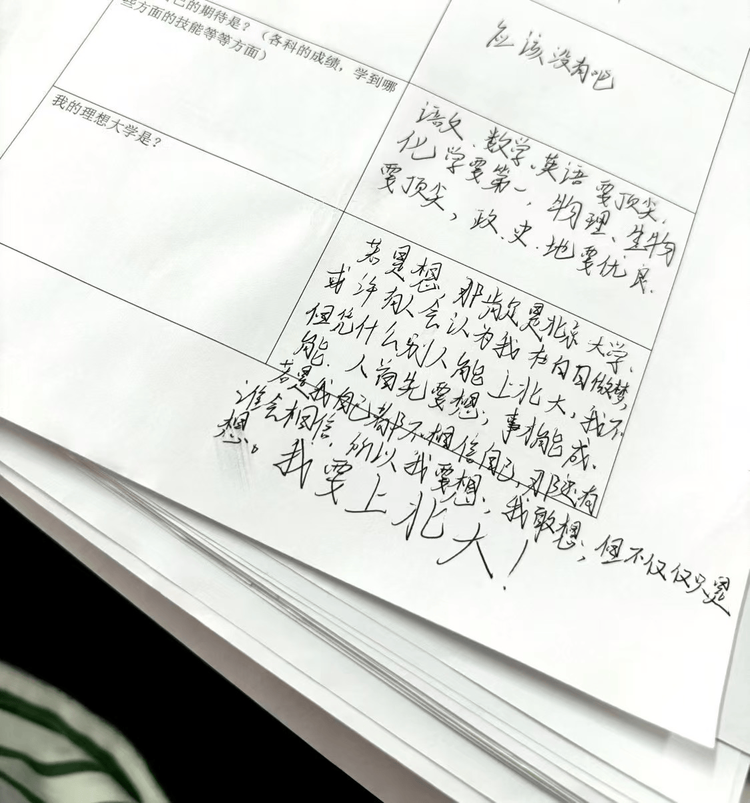 己的期待是？（各科的成绩，学到哪
些方面的技能等等方面）
应该没有吧
语文、数学、英语要顶尖，
化学要第一，物理、生物
要顶尖，政、史、地要优良．
我的理想大学是？
若是想，那肯定是北京大学、
或许有人会认为我在白日做梦，
但凭什么别人能上北大，我不
能．人首先要想，事才能成．
若是我自己都不相信自己，那还有
谁会相信．所以我要想，我敢想，但不仅仅只是
想。
我要上北大！